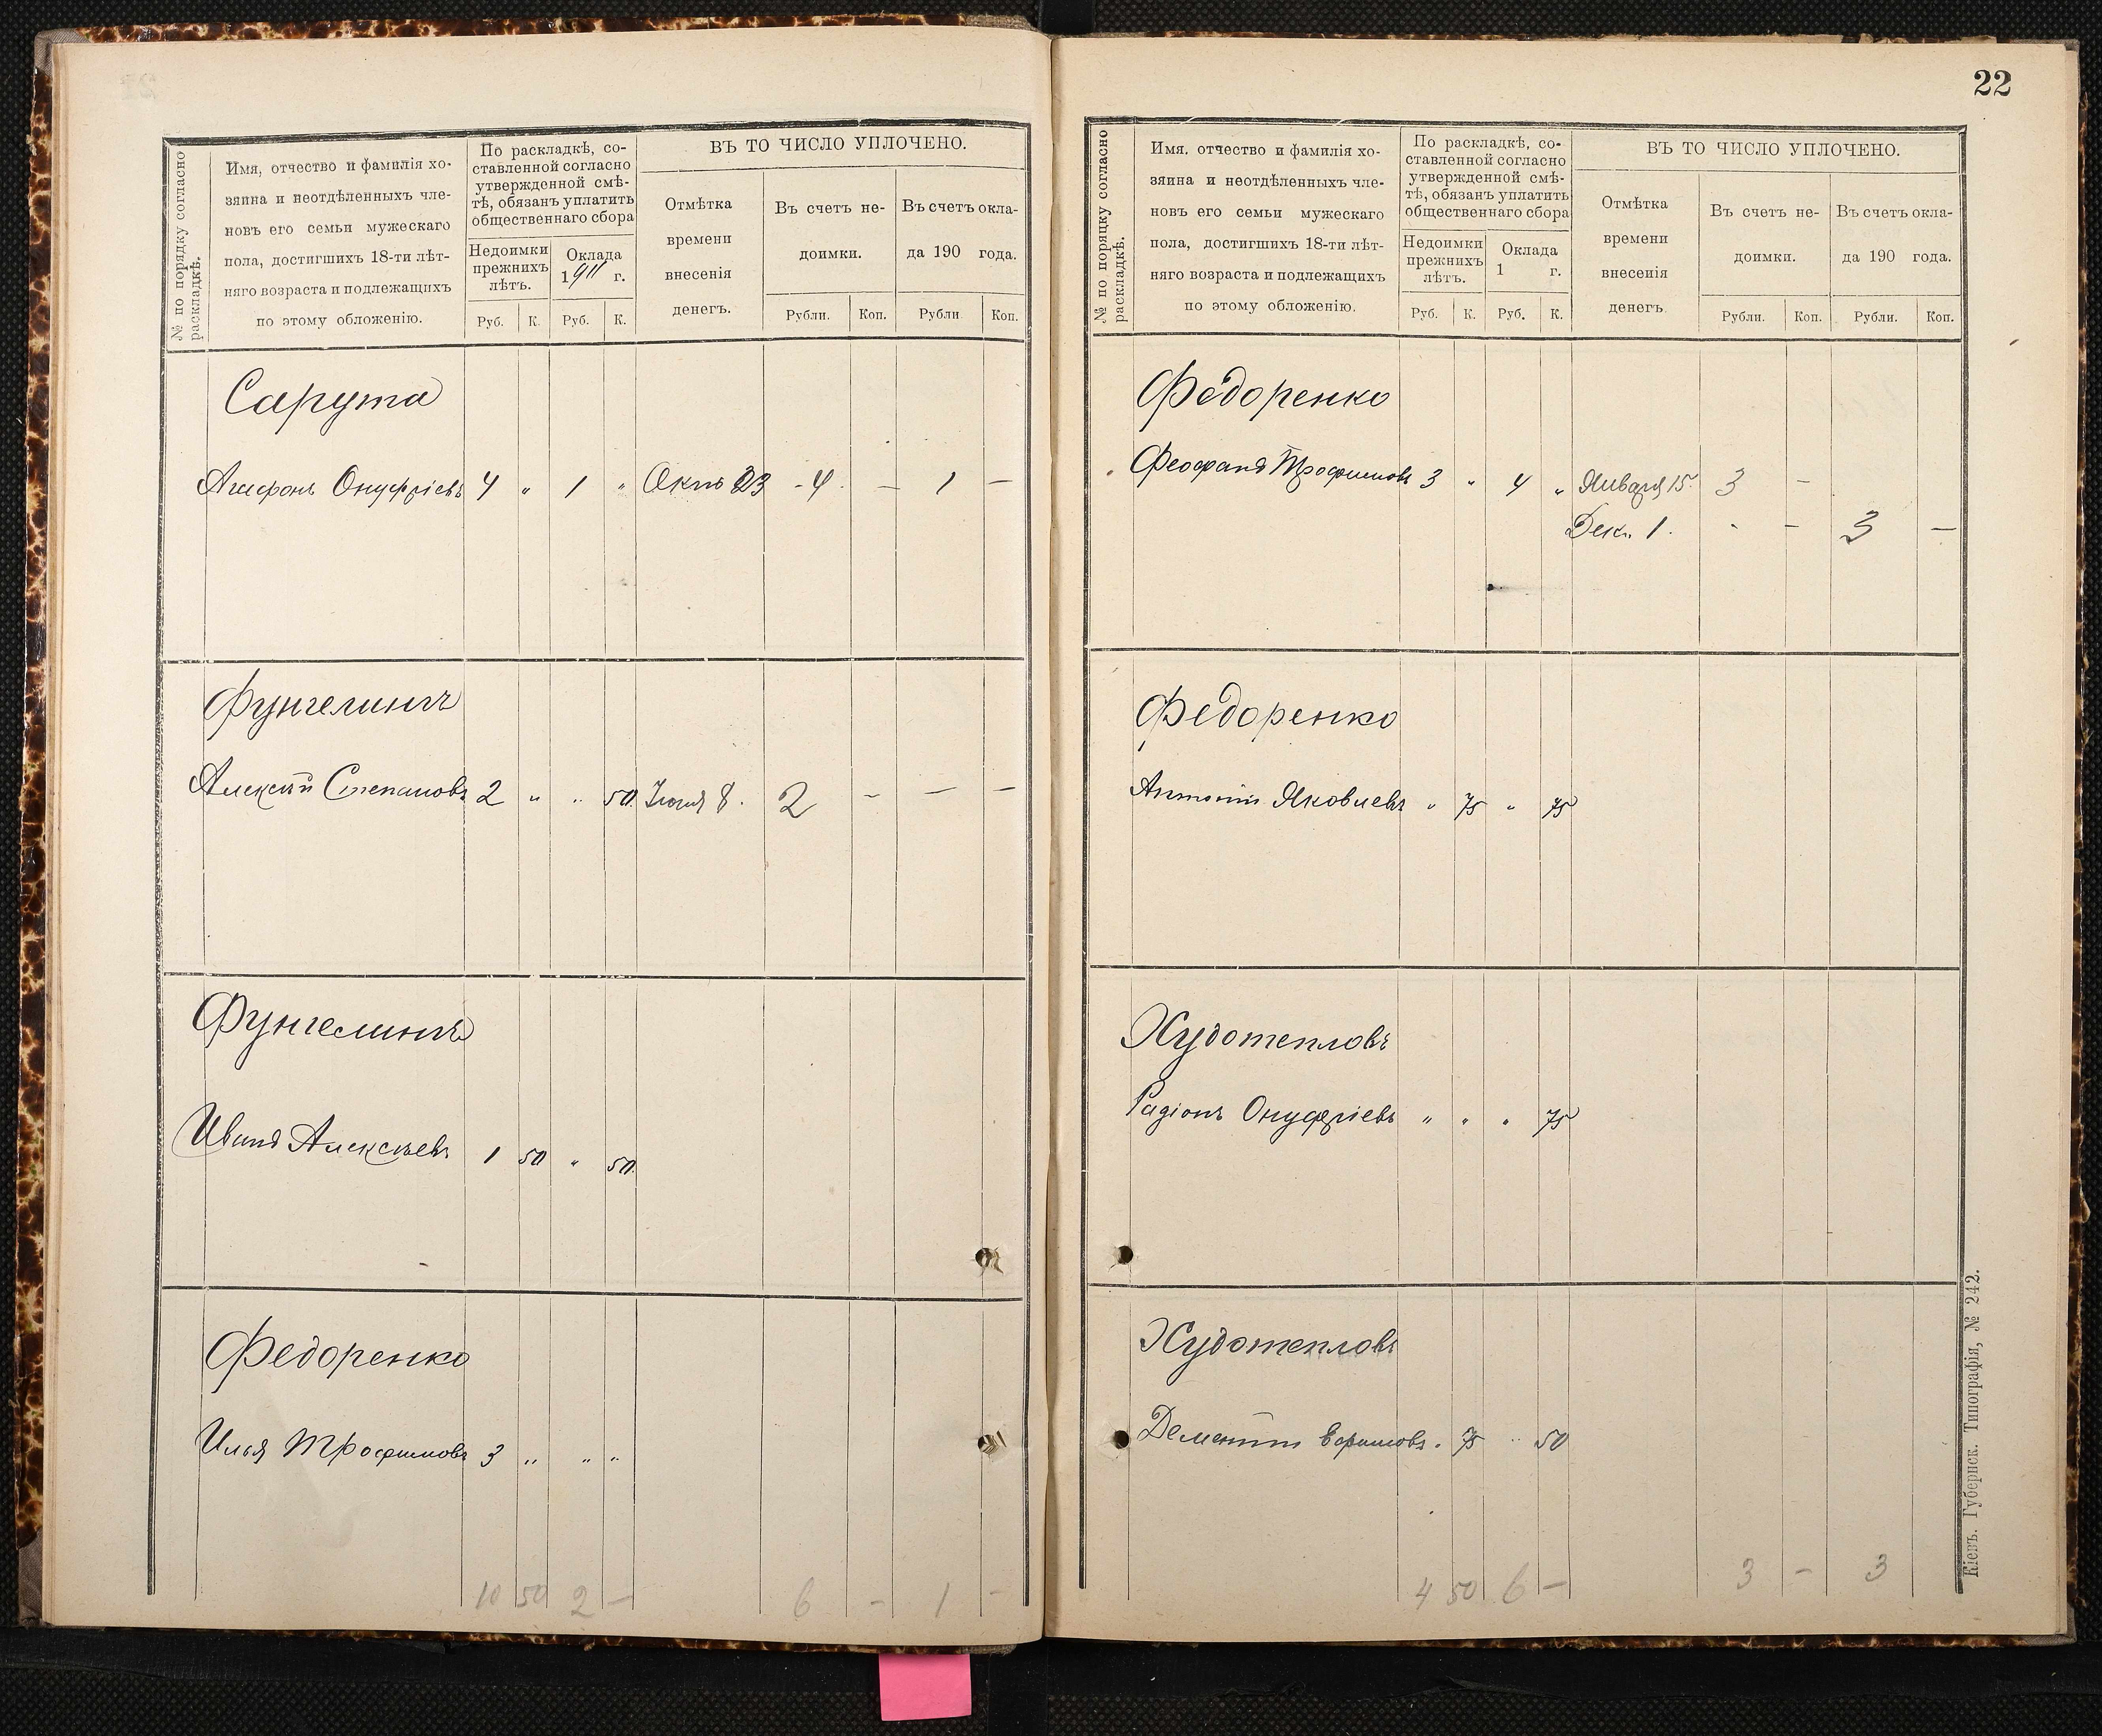 № по порядку согласно
раскладкѣ.
Имя, отчество и фамилія хо-
зяина и неотдѣленныхъ чле-
новъ его семьи мужескаго
пола, достигшихъ 18-ти лѣт-
няго возраста и подлежащихъ
по этому обложенію.
По раскладкѣ, со-
ставленной согласно
утвержденной смѣ-
тѣ, обязанъ уплатить
общественнаго сбора
Недоимки
прежнихъ
лѣтъ.
Оклада
1911 г.
ВЪ ТО ЧИСЛО УПЛОЧЕНО.
Отмѣтка
времени
внесенія
денегъ.
Въ счетъ не-
доимки.
Въ счетъ окла-
да 190 года.
Руб. К. Руб. К. Рубли. Коп. Рубли Коп.
Сарута
Агафонъ Онуфріевъ 4 „ 1 „ Окт. 23 - 4 — 1 —
Фунгелинъ
Алексѣй Степановъ 2 „ „ 50. Іюля 8. 2 — — —
Фунгелинъ
Иванъ Алексѣевъ 1 50 „ 50.
Федоренко
Илья Трофимовъ 3 „ „ „
10 50 2 — 6 - 1 -
22
№ по порядку согласно
раскладкѣ.
Имя, отчество и фамилія хо-
зяина и неотдѣленныхъ чле-
новъ его семьи мужескаго
пола, достигшихъ 18-ти лѣт-
няго возраста и подлежащихъ
по этому обложенію.
По раскладкѣ, со-
ставленной согласно
утвержденной смѣ-
тѣ, обязанъ уплатить
общественнаго сбора
Недоимки
прежнихъ
лѣтъ.
Оклада
1 г.
ВЪ ТО ЧИСЛО УПЛОЧЕНО.
Отмѣтка
времени
внесенія
денегъ
Въ счетъ не-
доимки.
Въ счетъ окла-
да 190 года.
Руб. К. Руб. К. Рубли. Коп. Рубли. Коп.
Федоренко
Феофанъ Трофимовъ 3 „ 4 „ Января 15. 3 —
Дек. 1. - — 3 —
Федоренко
Антоній Яковлевъ „ 75 „ 75
Худотепловъ
Радіонъ Онуфріевъ „ „ „ 75
Худотепловъ
Дементій Ефимовъ „ 75 „ 50
4 50 6 — 3 - 3
Кіевъ. Губернск. Типографія, № 242.